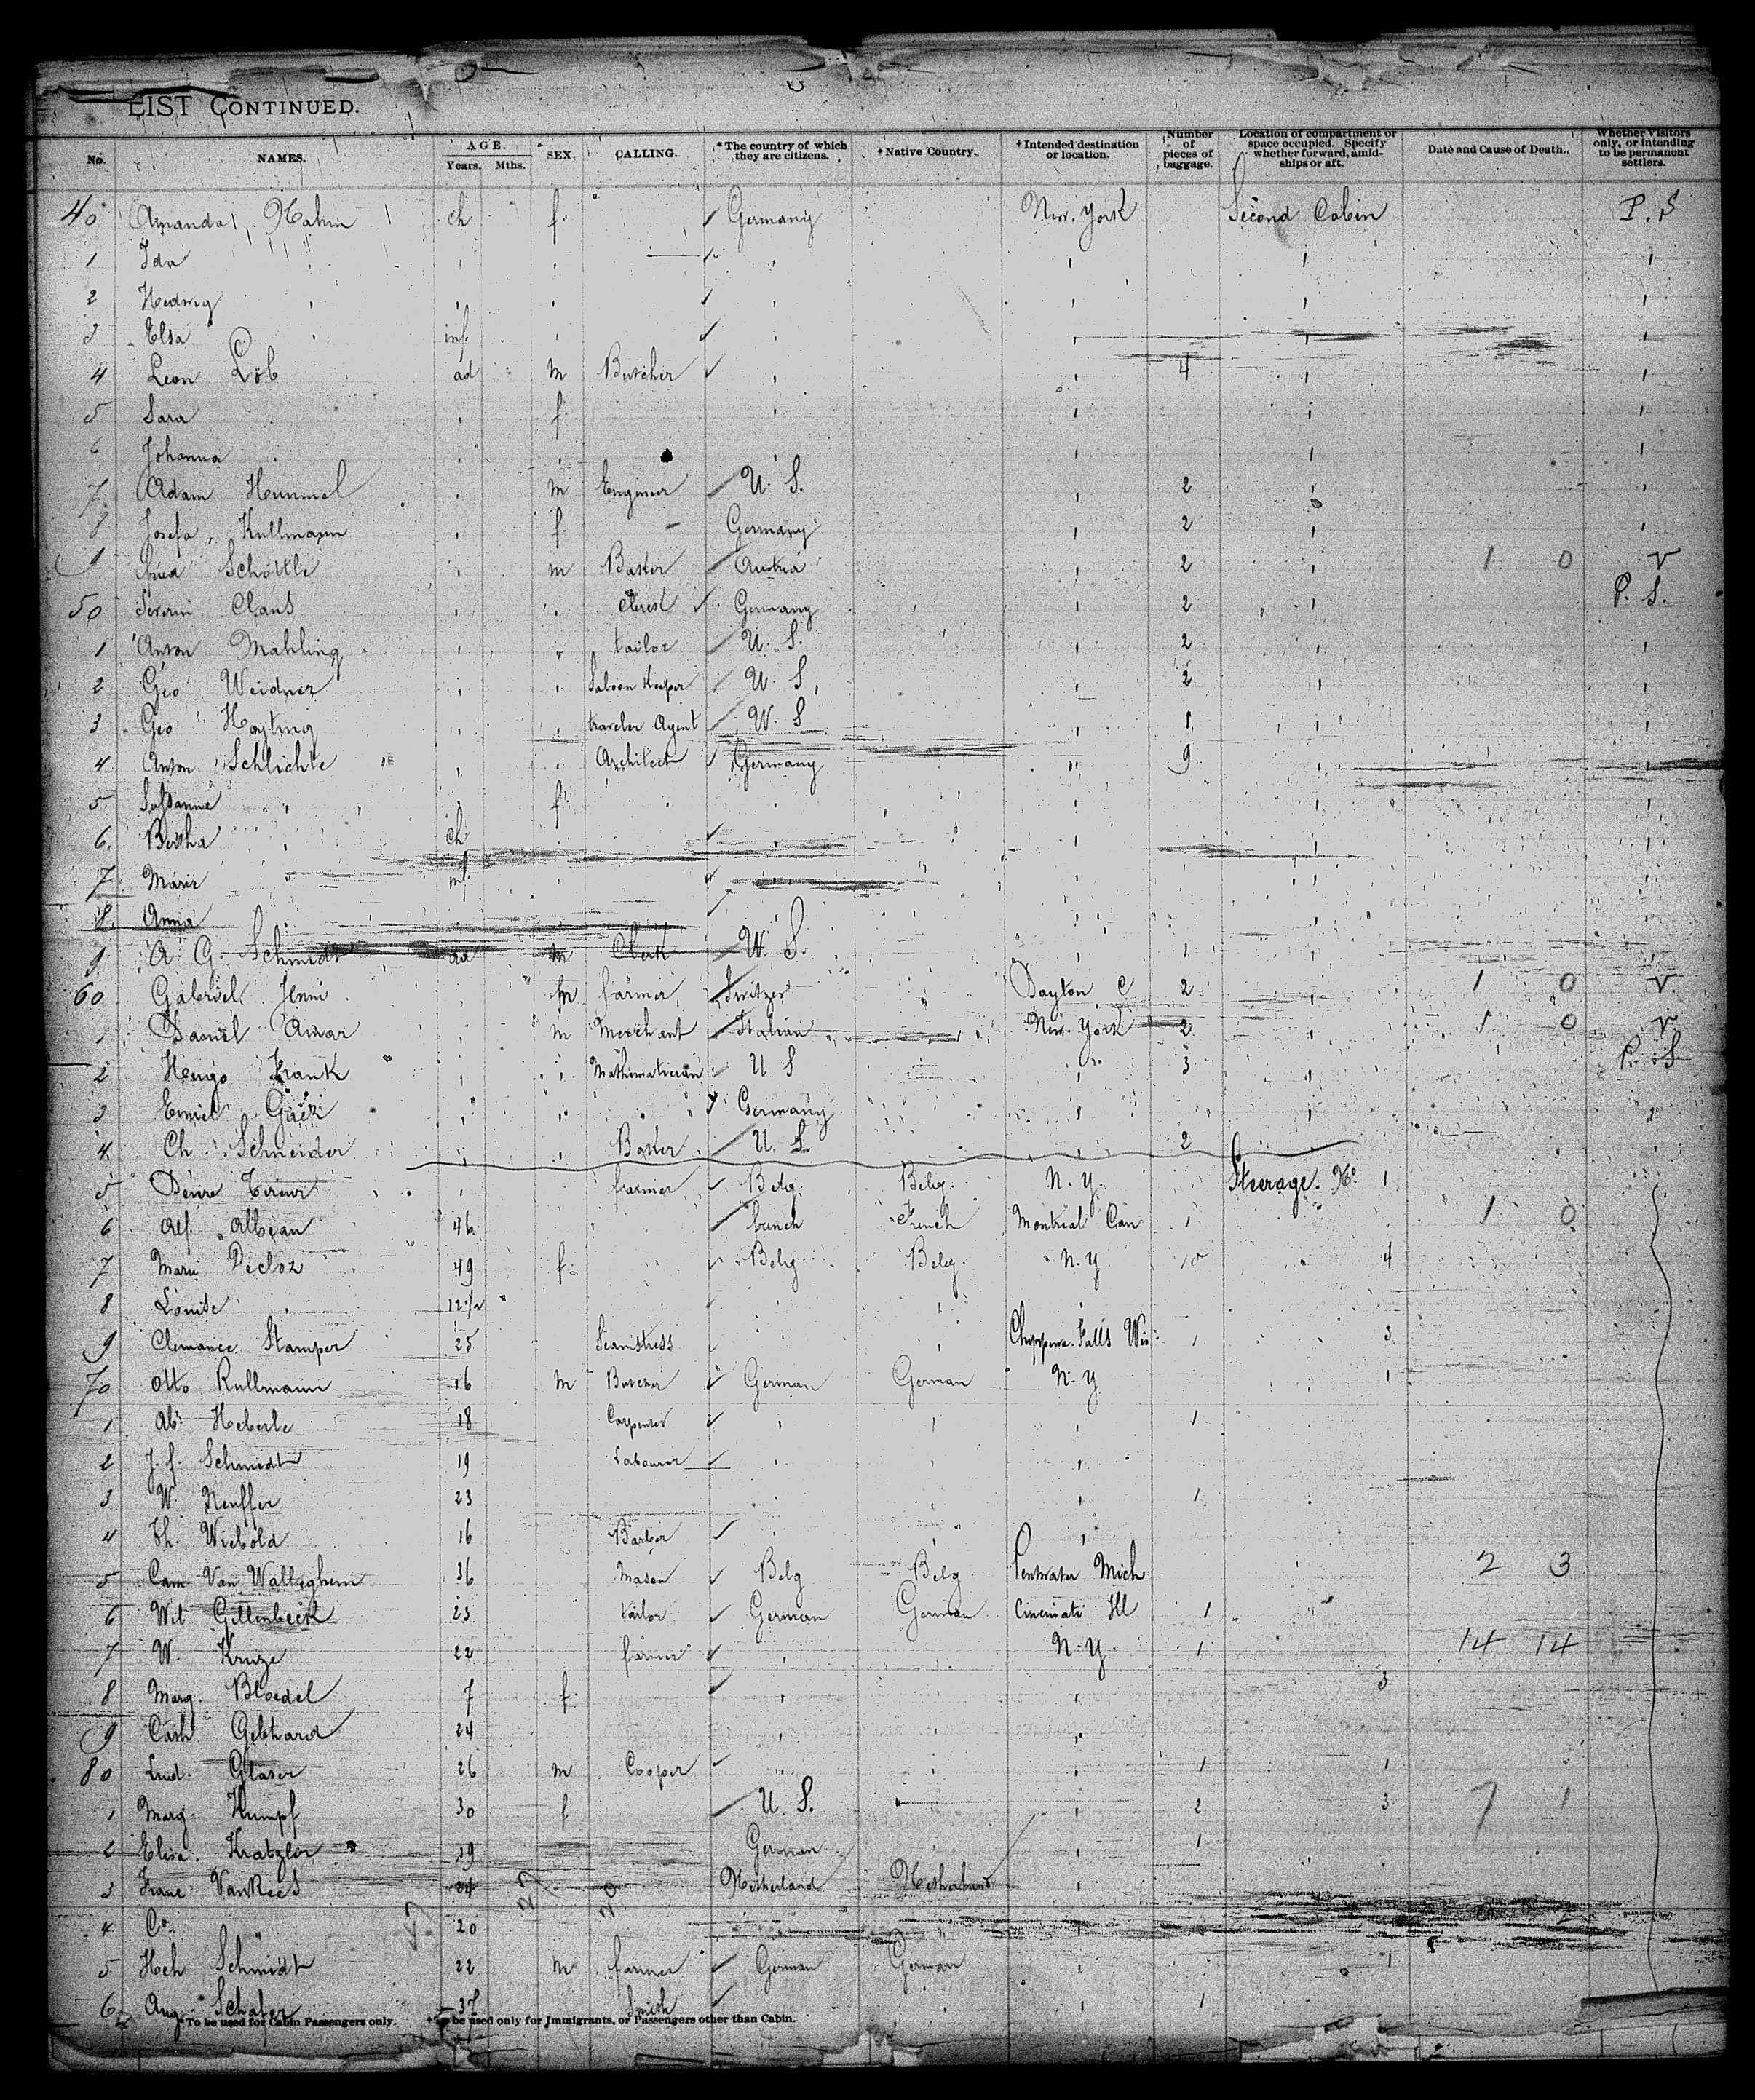 LIST CONTINUED.
No. NAMES. AGE. Years. Mths. SEX. CALLING. *The country of which they are citizens. †Native Country. †Intended destination or location. Number of pieces of baggage. Location of compartment or space occupied. Specify whether forward, amidships or aft. Date and Cause of Death. Whether Visitors only, or intending to be permanent settlers.
40 Amanda Hahn ch f Germany New. York Second Cabin P. S
1 Ida
2 Hedwig
3 Elsa inf.
4 Leon Löb ad m Butcher 4
5 Sara f
6 Johanna
7 Adam Hummel m Engineer U. S. 2
8 Josefa Kullmann f. - Germany 2
9 Schöttle m Baker Austria 2 1 0 V
50 Severin Claus Germany 2 P. S.
1 Anton Mahling tailor U. S. 2
2 Geo Weidner Saloon Keeper U. S. 2
3 Geo traveler Agent U. S 1
4 Anton Schlichte Architect Germany 9
5 Susanne f.
6. Bertha ch
7 Marie inf
8 Anna
9 A. G. Schmidt ad m Clerk U. S. 1
60 Gabriel Jenni m farmer Switzer Dayton 2 1 0 V.
1 Daniel Amar m Merchant Italian New. York 2 1 0 V
2 Hugo Frank Mathematician U S 3 P. S
3 Emil Germany
4. Ch. Schneider Baker U. S 2
5 farmer Belg. Belg. N. Y. Steerage. No. 1
6 Alf. Albean 46 french French Montreal Can 1 1 0
7 Marie Decloz 49 f. Belg. Belg. N. Y 10 4
8 Louise 12½
9 Clemance Stamper 25 Seamstress Chippewa Falls Wis. 1 3
70 Otto Rullmann 16 m Butcher German German N. Y 1
1 Ab. Heberle 18 Carpenter 1
2 J. f. Schmidt 19 Labourer
3 W. Neuffer 23 1
4 Th. Wiebold 16 Barber
5 Cam Van Walleghem 36 Mason Belg Belg Pentwater Mich 2 3
6 Wil Gillenbeck 23 tailor German German Cincinati Ill 1
7 W. Kruze 22 farmer N. Y. 1 14 14
8 Marg. Bloedel 7 f 3
9 Cath Gebhard 24
80 Lud. Glaser 26 m Cooper 1 1
1 Marg. Kumpf 30 f U. S. 2 3 7 1
2 Elisa. Kratzler 19 German 1
3 Franc. VanRees 24 Netherland Netherland
4 Co. 20
5 Hch Schmidt 22 m farmer German German 1
6 Aug. Schafer 37 Smith 1
*To be used for Cabin Passengers only. †To be used only for Immigrants, or Passengers other than Cabin.